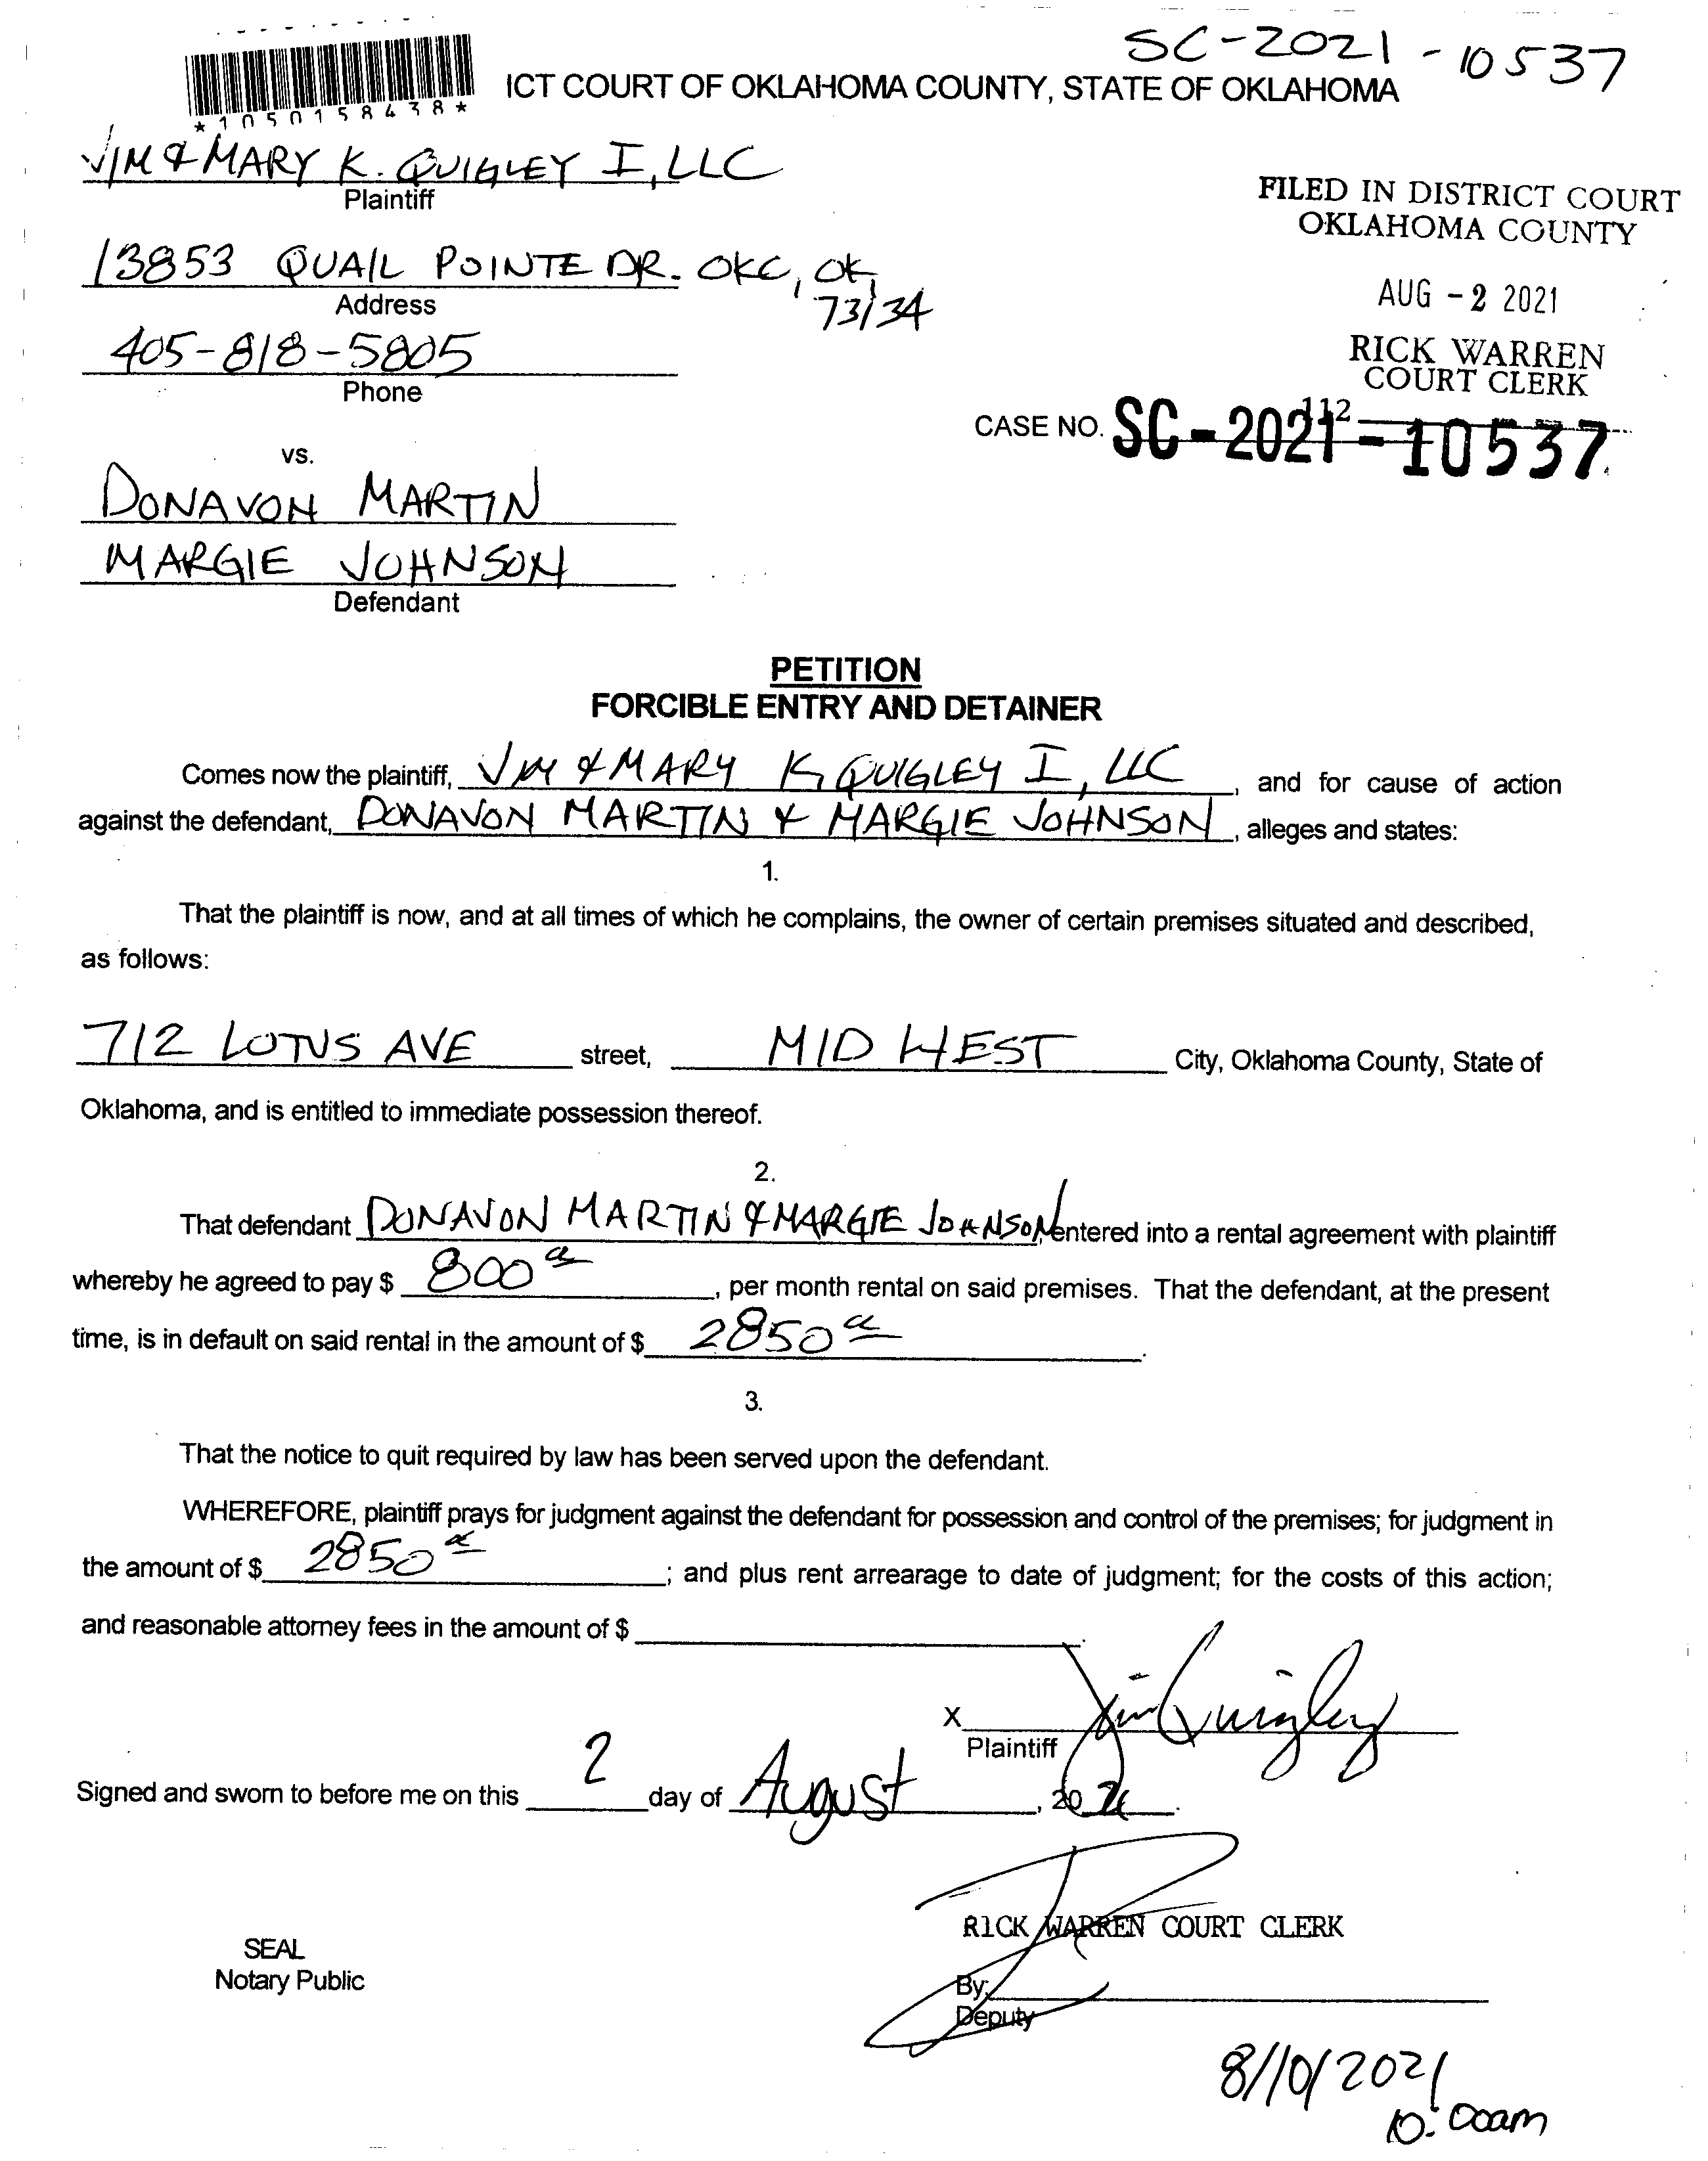 SC-2021-10537
ICT COURT OF OKLAHOMA COUNTY, STATE OF OKLAHOMA
*1050158438*
JIM & MARY K. QUIGLEY I, LLC
Plaintiff
FILED IN DISTRICT COURT
OKLAHOMA COUNTY
13853 QUAIL POINTE DR. OKC, OK,
73134
Address
AUG -2 2021
405-818-5805
Phone
RICK WARREN
COURT CLERK
112
CASE NO. SC-2021-10537
vs.
DONAVON MARTIN
MARGIE JOHNSON
Defendant
PETITION
FORCIBLE ENTRY AND DETAINER
Comes now the plaintiff, JIM & MARY K QUIGLEY I, LLC, and for cause of action
against the defendant, DONAVON MARTIN & MARGIE JOHNSON, alleges and states:
1.
That the plaintiff is now, and at all times of which he complains, the owner of certain premises situated and described,
as follows:
712 LOTUS AVE street, MID WEST City, Oklahoma County, State of
Oklahoma, and is entitled to immediate possession thereof.
2.
That defendant DONAVON MARTIN & MARGIE JOHNSON, entered into a rental agreement with plaintiff
whereby he agreed to pay $ 800, per month rental on said premises. That the defendant, at the present
time, is in default on said rental in the amount of $ 2850.
3.
That the notice to quit required by law has been served upon the defendant.
WHEREFORE, plaintiff prays for judgment against the defendant for possession and control of the premises; for judgment in
the amount of $ 2850; and plus rent arrearage to date of judgment; for the costs of this action;
and reasonable attorney fees in the amount of $
X Jim Quigley
Plaintiff
Signed and sworn to before me on this 2 day of August, 2021.
RICK WARREN COURT CLERK
SEAL
Notary Public
By:
Deputy
8/10/2021
10:00am